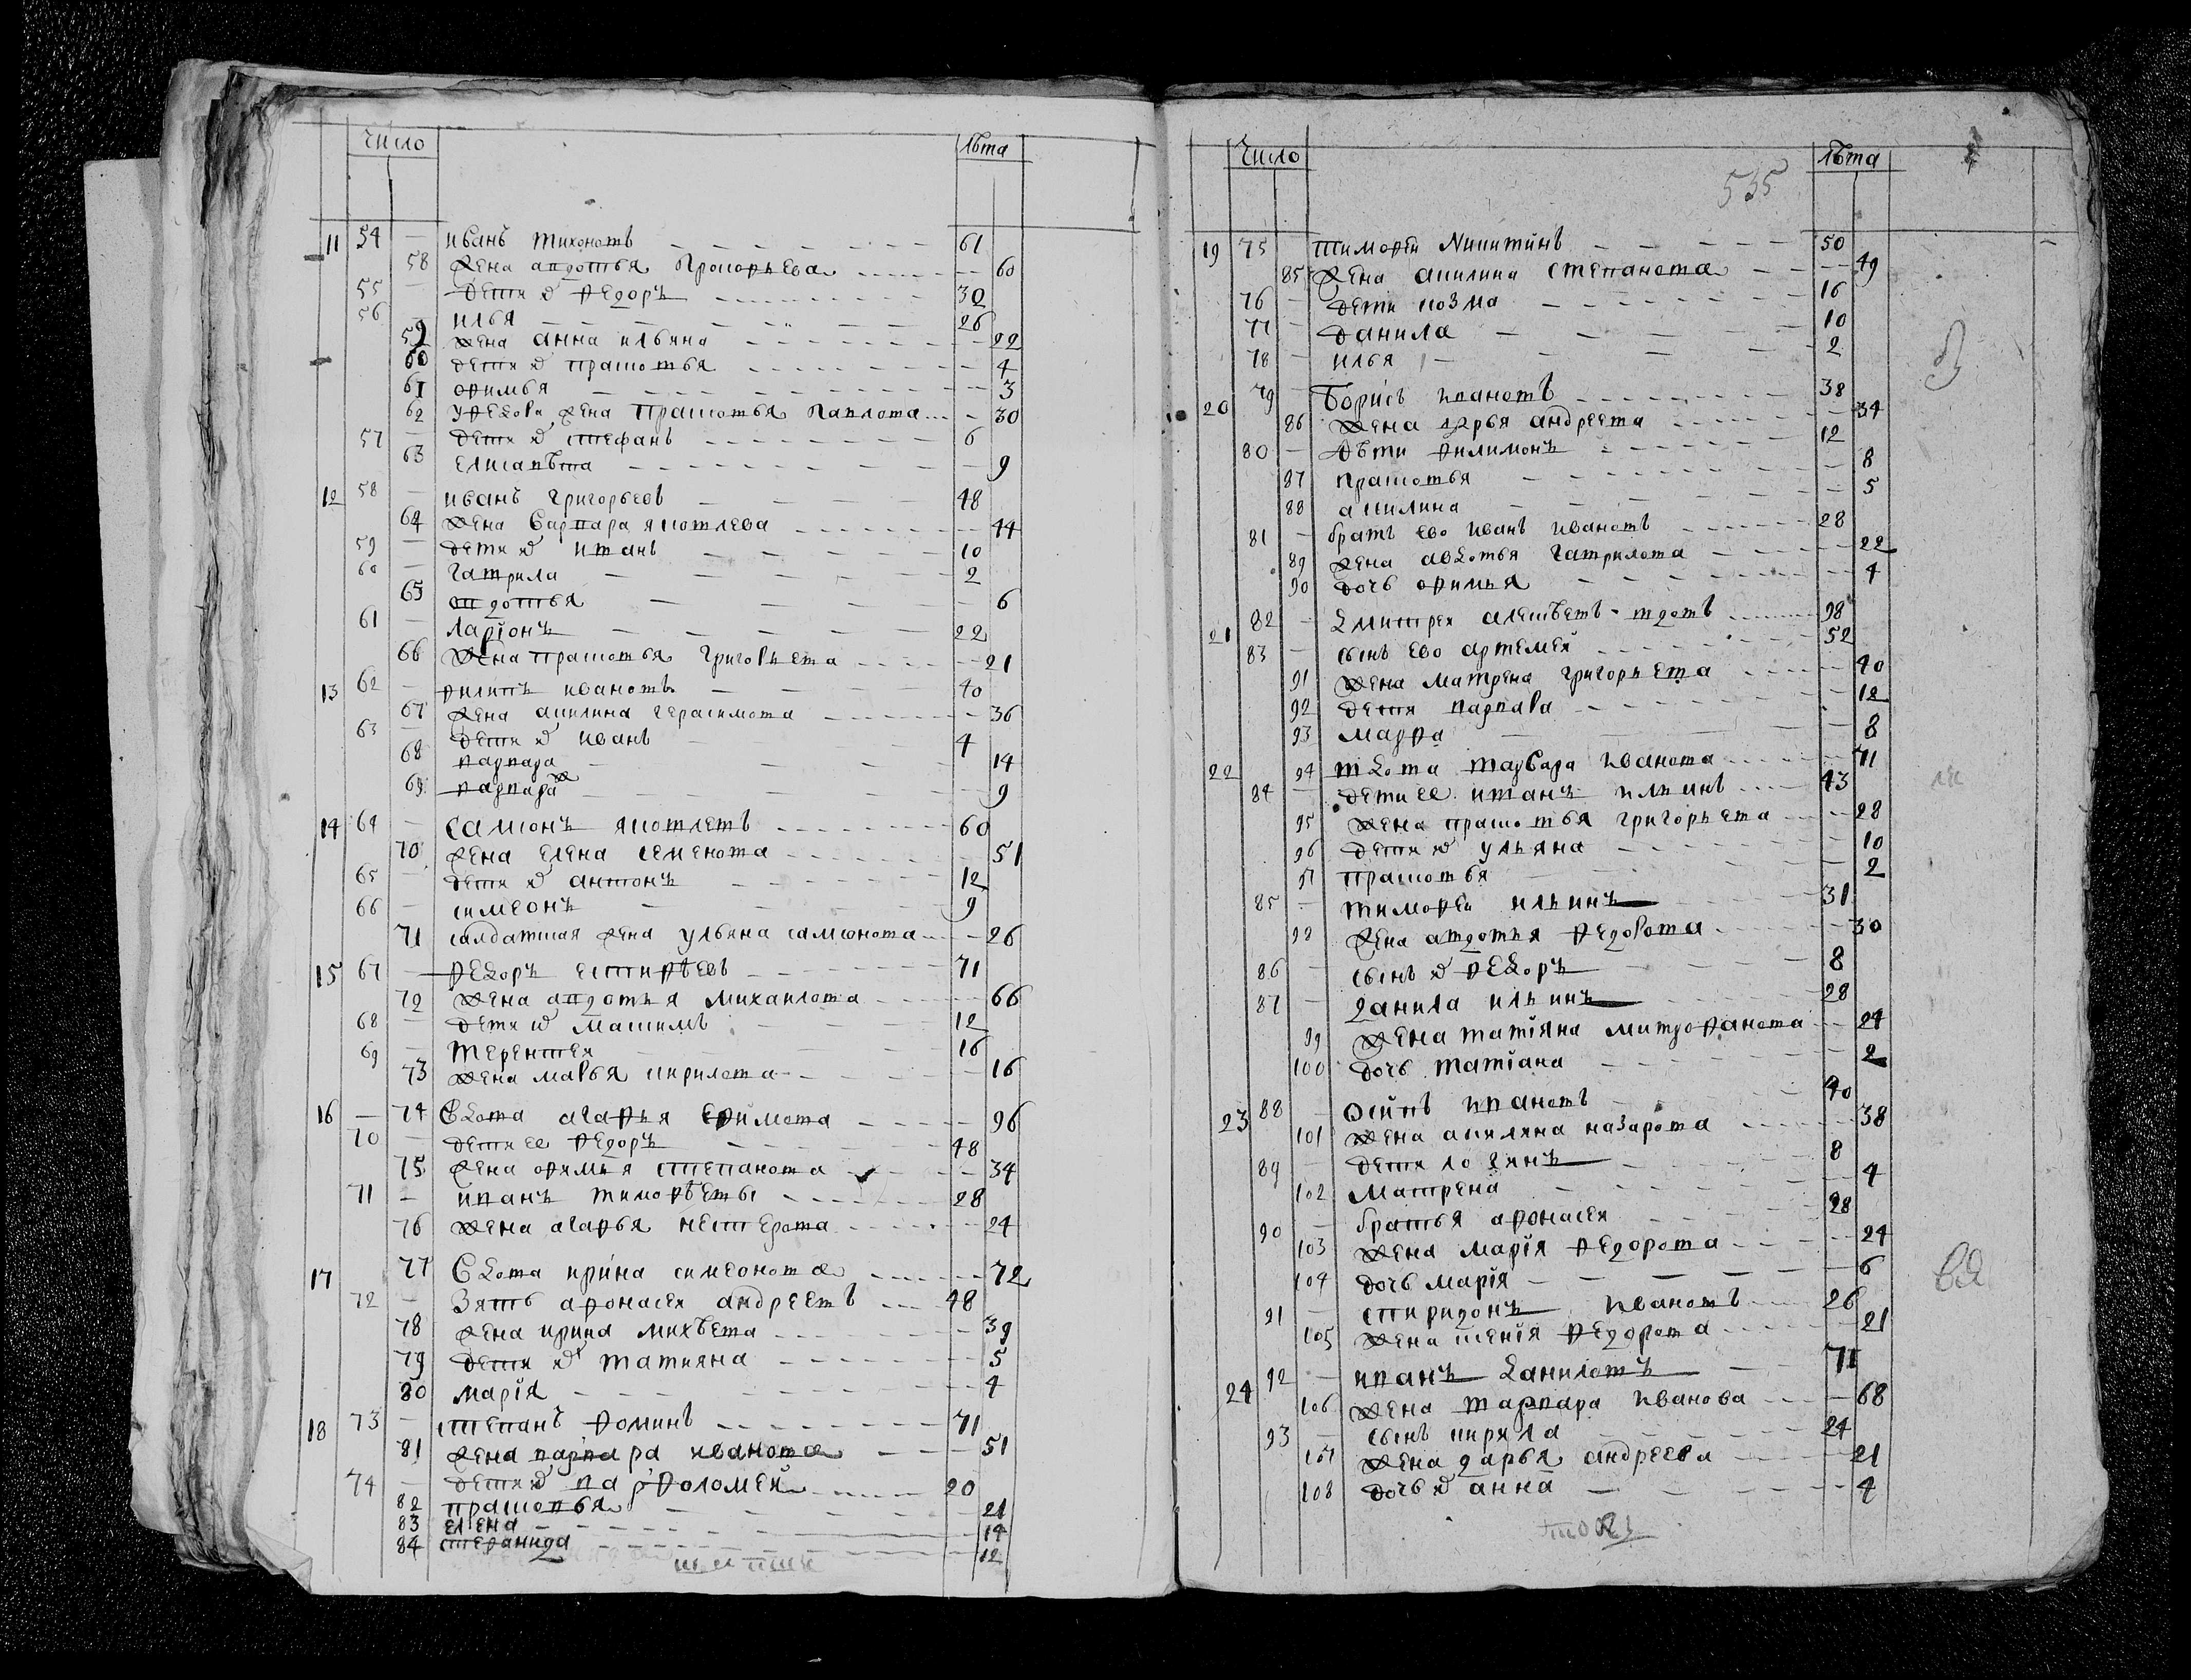 число лѣта
11 54 — иванъ тихоновъ 61
58 жена авдотья прокорьева 60
55 — дети ѿ федоръ 30
56 — илья 26
59 жена анна ильина 22
60 дети ѿ прасковья 4
61 офимья 3
62 у федора жена прасковья павлова 30
57 — дети ѿ стефанъ 6
63 елисавѣта 9
12 58 — иванъ григорьевъ 48
64 жена варвара яковлева 44
59 — дети ѿ иванъ 10
60 — гаврила 2
65 авдотья 6
61 — ларіонъ 22
66 жена прасковья григорьева 21
13 62 — филипъ ивановъ 40
67 жена акилина герасимова 36
63 — дети ѿ иванъ 4
68 варвара 14
69 варвара ж 9
14 64 — самсонъ яковлевъ 60
70 жена елена семенова 51
65 — дети ѿ антонъ 12
66 — симеонъ 9
71 салдатская жена ульяна самсонова 26
15 67 — федоръ естифѣевъ 71
72 жена авдотья михаилова 66
68 — дети ѿ макимъ 12
69 — терентеи 16
73 жена марья кирилова 16
16 — 74 вдова агафья ефимова 96
70 — дети ее федоръ 48
75 жена офимья степанова 34
71 — иванъ тимофѣевы 28
76 жена агафья нестерова 24
17 77 вдова ирина симеонова 72
72 — зять афонасеи андреевъ 48
78 жена ирина михѣева 39
79 дети ѿ татияна 5
80 марія 4
18 73 — степанъ фоминъ 71
81 жена варвара иванова 51
74 — дети ѿ варфоломеи 20
82 прасковья 21
83 елена 14
84 стефанида 12
число лѣта
535
19 75 тимофеи никитинъ 50
85 жена акилина степанова 49
76 — дети козма 16
77 — данила 10
78 — илья 2
20 79 — борисъ ивановъ 38
86 жена дарья андреева 34
80 — дѣти филимонъ 12
87 прасковья 8
88 акилина 5
81 — братъ ево иванъ ивановъ 28
89 жена авдотья гаврилова 22
90 дочь офимья 4
21 82 — дмитреи алексѣевъ вдовъ 98
83 — сынъ ево артемеи 52
91 жена матрена григорьева 40
92 дети варвара 12
93 марфа 8
22 94 вдова варвара иванова 71
84 — дети ее иванъ ильинъ 43
95 жена прасковья григорьева 28
96 дети ѿ ульяна 10
97 прасковья 2
85 — тимофеи ильинъ 31
98 жена авдотья федорова 30
86 — сынъ ѿ федоръ 8
87 — данила ильинъ 28
99 жена татіяна митрофанова 24
100 дочь татіана 2
23 88 — осипъ ивановъ 40
101 жена акиляна назарова 38
89 — дети логинъ 8
102 матрена 4
90 — братья афонасеи 28
103 жена марія федорова 24
104 дочь марія 6
91 — спиридонъ ивановъ 26
105 жена ксенія федорова 21
24 92 — иванъ даниловъ 71
106 жена варвара иванова 68
93 — сынъ кирила 24
107 жена дарья андреева 21
108 дочь ѿ анна 4